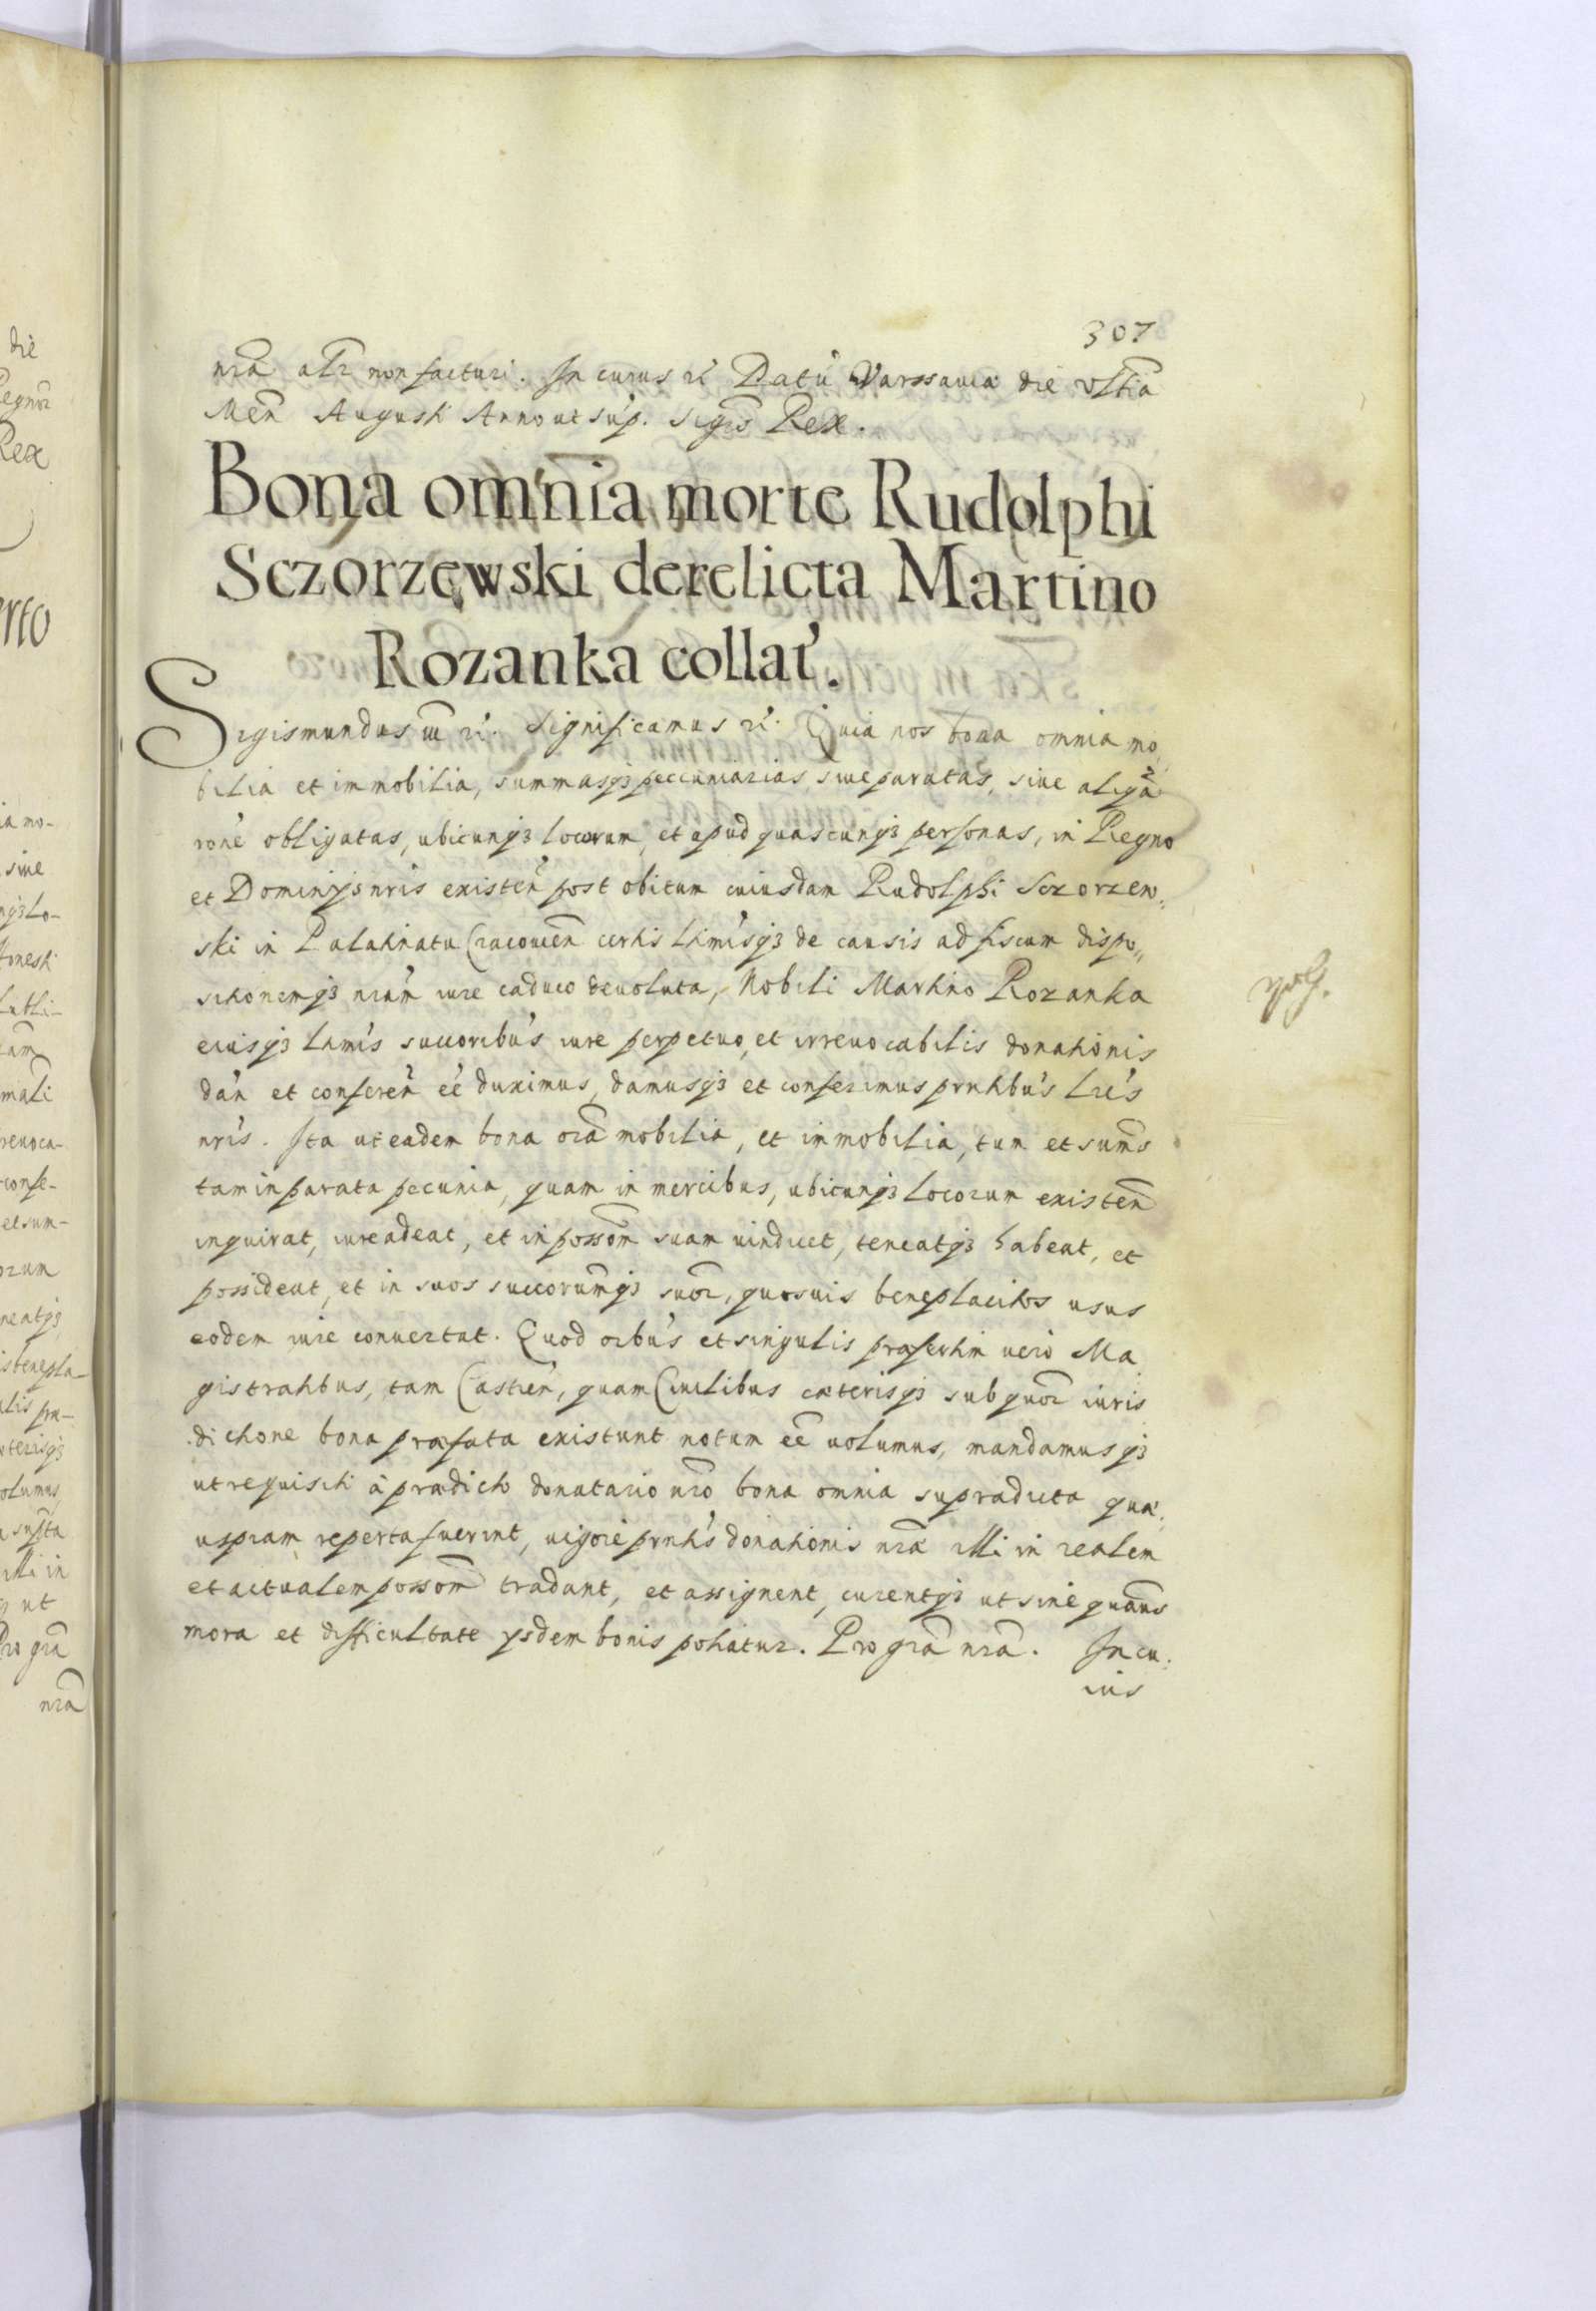 307
nrã alr non facturi. In cuius rẻ Datũ Varssauiæ die vltiã
Meñ Augusti Anno ut sup. Sigis Rex.
Bona omnia morte Rudolphi
Sczorzewski derelicta Martino
Rozanka collat'.
Sigismundus iii rẻ. Significamus rẻ. Quia nos bona omnia mo
bilia et immobilia, summasq3 peccuniarias, siue paratas, siue aliqã
rone obligatas, ubicunq3 locorum, et apud quascunq3 personas, in Regno
et Dominijs nris existeñ post obitum cuiusdam Rudolphi Sczorzew,,
ski in Palatinatu Cracouieñ certis ltimisq3 de causis ad fiscum dispo,,
sitionemq3 nrãm iure caduco deuoluta, Nobili Martino Rozanka
eiusq3 ltimis succoribus iure perpetuo, et irreuocabilis donationis
dañ et confereñ eẽ duximus, damusq3 et conferimus prntibus lris
nris. Ita ut eadem bona oia mobilia, et immobilia, tum et sums
tam in parata pecunia, quam in mercibus, ubicunq3 locorum existeñ
inquirat, iure adeat, et in possom suam uindicet, teneatq3 habeat, et
possideat, et in suos succorumq3 suor, quosuis beneplacitos usus
eodem iure conuertat. Quod oibus et singulis præsertim uero Ma
gistratibus, tam Castreñ, quam Ciuilibus cæterisq3 sub quor iuris
dictione bona præfata existunt notum eẽ uolumus, mandamusq3
ut requisiti à prædicto donatario nro bona omnia supradicta quæ
uspiam reperta fuerint, uigore prntis donationis nræ illi in realem
et actualem possom tradant, et assignent, curentq3 ut sine quauis
mora et difficultate ysdem bonis potiatur. Pro grã nrã. In cu,
ius